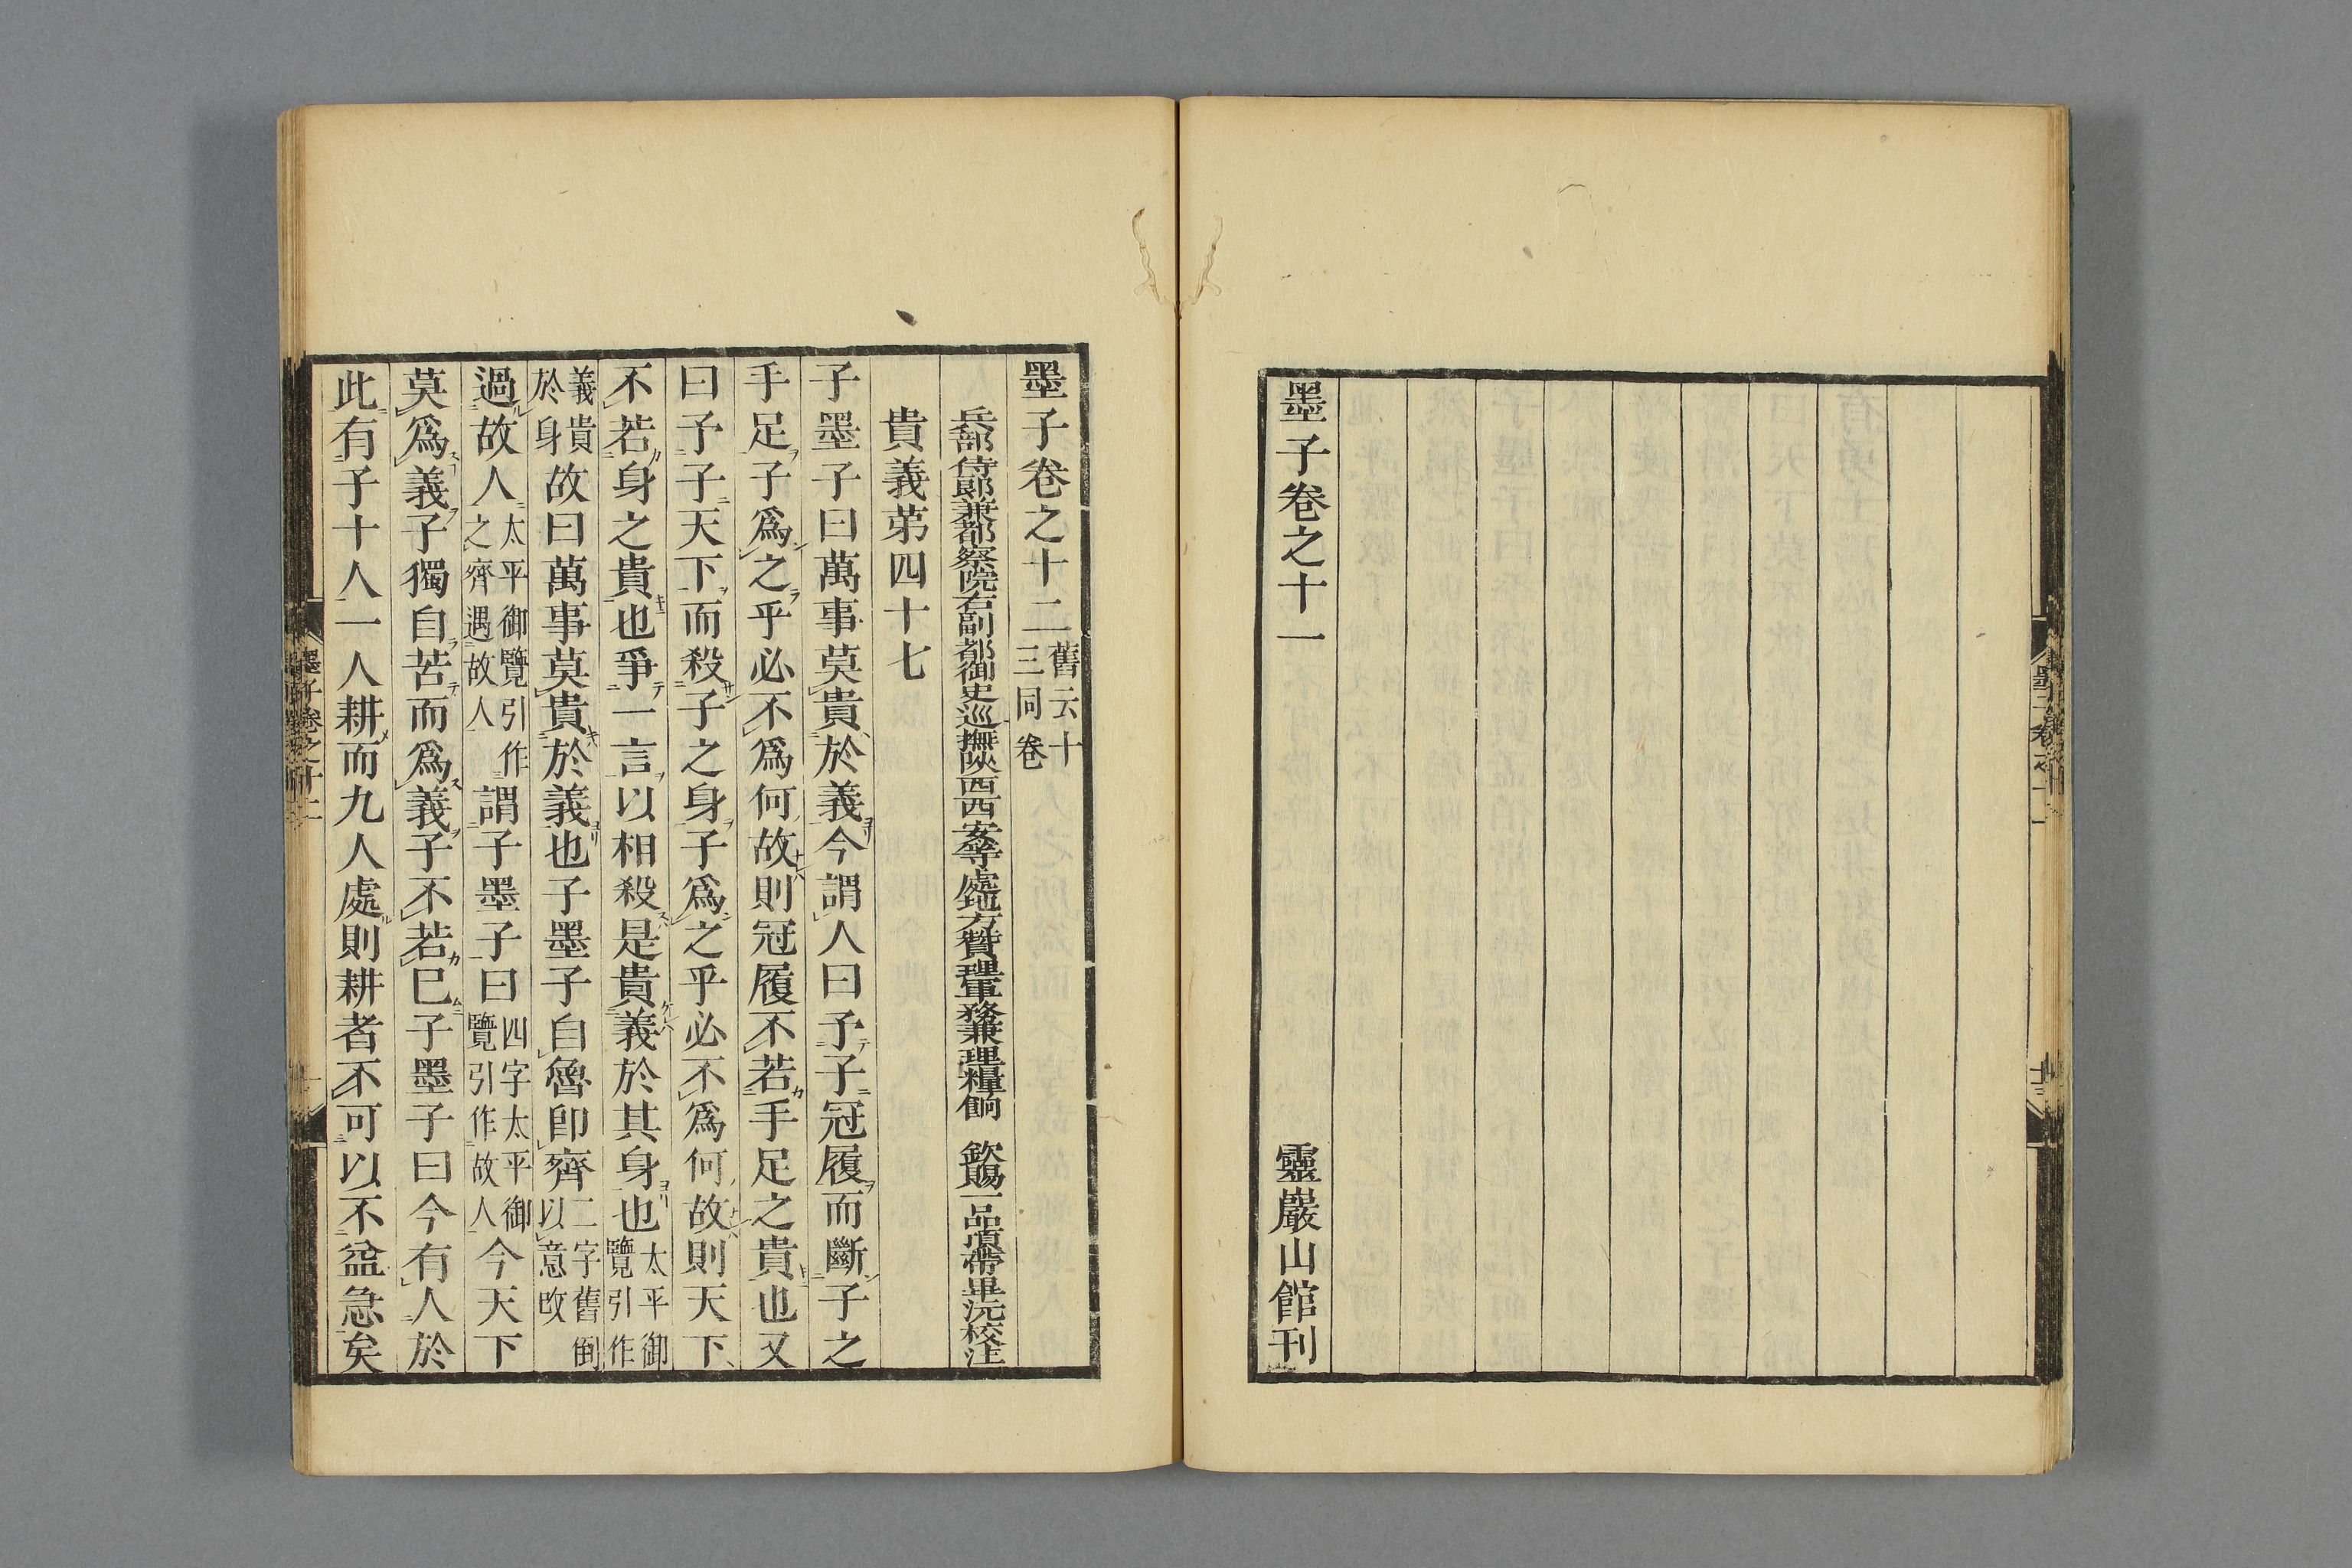 墨子卷之十一　靈巖山館刊
墨子卷之十二舊云十三同卷
兵部侍郎兼都察院右副都御史巡撫陝西西安等處地方贊理軍務兼理糧餉　欽賜一品頂帶畢沅校注
貴義第四十七
子墨子曰萬事莫貴於義今謂人曰予子冠履而斷子之
手足子爲之乎必不爲何故則冠履不若手足之貴也又
曰予子天下而殺子之身子爲之乎必不爲何故則天下
不若身之貴也爭一言以相殺是貴義於其身也太平御覽引作
義貴於身故曰萬事莫貴於義也子墨子自魯卽齊二字舊倒以意改
過故人太平御覽引作之齊遇故人謂子墨子曰四字太平御覽引作故人今天下
莫爲義子獨自苦而爲義子不若巳子墨子曰今有人於
此有子十人一人耕而九人處則耕者不可以不益急矣
墨子卷之十二